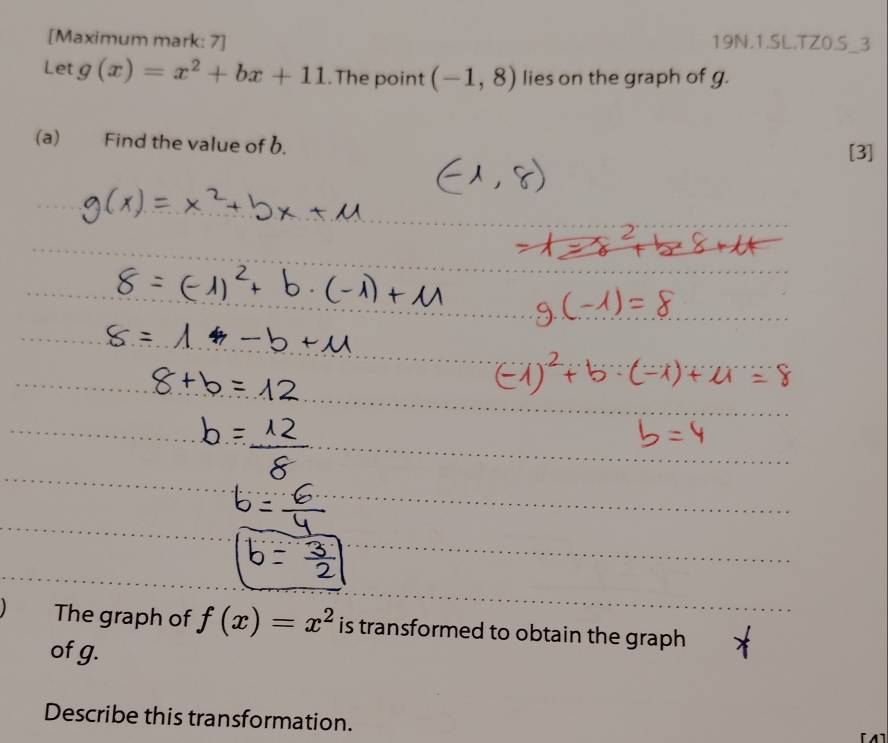 [Maximum mark: 7] 19N.1.SL.TZ0.S_3
Let g(x) = x² + bx + 11. The point (−1, 8) lies on the graph of g.
(a) Find the value of b. [3]
(-1, 8)
g(x) = x² + bx + 11
8 = (-1)² + b · (-1) + 11
g(-1) = 8
8 = 1 - b + 11
(-1)² + b · (-1) + 11 = 8
8 + b = 12
b = 4
b = 12/8
b = 6/4
b = 3/2
) The graph of f(x) = x² is transformed to obtain the graph
of g.
Describe this transformation.
[4]